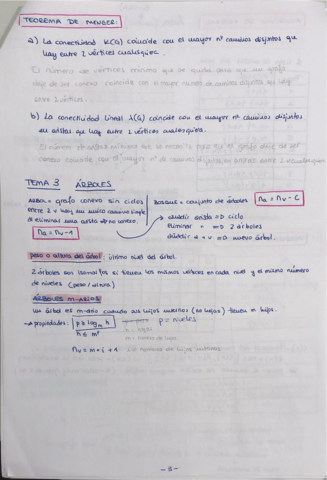 TEOREMA DE MENGER:
a) La conectividad K(G) coincide con el mayor nº caminos disjuntos que
hay entre 2 vértices cualesquiera.
El número de vértices mínimo que se quita para que un grafo
deje de ser conexo coincide con el mayor número de caminos disjuntos que hay
entre 2 vértices.
b) La conectividad lineal λ(G) coincide con el mayor nº caminos disjuntos
en aristas que hay entre 2 vértices cualesquiera.
El número de aristas mínimo que se necesita para que un grafo deje de ser
conexo coincide con el mayor nº de caminos disjuntos en aristas entre 2 vértices
TEMA 3 ÁRBOLES
ARBOL = grafo conexo sin ciclos
entre 2 v hay un único camino simple
si eliminar una arista → no conexo.
na = nv - 1
BOSQUE = conjunto de árboles
na = nv - C
añadir arista => ciclo
eliminar => 2 árboles
añadir a + v => nuevo árbol.
peso o altura del árbol: último nivel del árbol.
2 árboles son isomorfos si tienen los mismos vértices en cada nivel y el mismo número
de niveles (peso/altura)
ÁRBOLES M-ARIOS
Un árbol es m-ario cuando sus hijos internos (no hojas) tienen m hijos.
→ propiedades: p ≥ log m h
h ≤ m^p
p = niveles
h = hojas
nv = m · i + 1
- 3 -